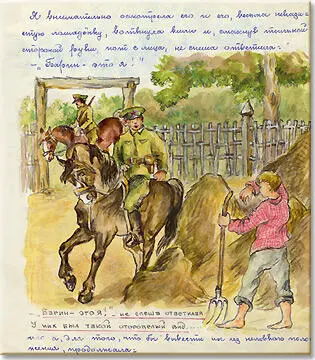 Я внимательно осмотрела его и его, весьма невзра-
стую лошадёнку, воткнула вилы и, смахнув тыльной
стороной руки, пот с лица, не спеша ответила:
- "Барин - это я!"
- „Барин - это я!" - не спеша ответила
У них был такой оторопелый вид....
что я, для того, что бы вывести их из неловкого поло
жения, продолжала: